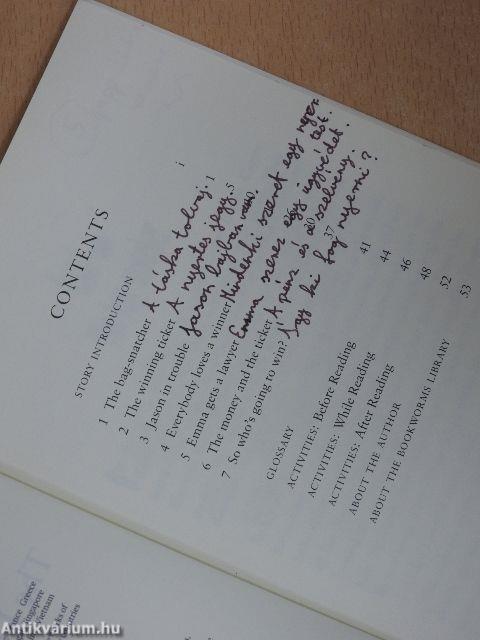 CONTENTS
STORY INTRODUCTION i
1 The bag-snatcher A táska tolvaj. 1
2 The winning ticket A nyertes jegy. 5
3 Jason in trouble Jason bajban van.
4 Everybody loves a winner Mindenki szeret egy nyer
5 Emma gets a lawyer Emma szerez egy ügyvédet.
6 The money and the ticket A pénz és a szelvény.
7 So who's going to win? Így ki fog nyerni? 37
GLOSSARY 41
ACTIVITIES: Before Reading 44
ACTIVITIES: While Reading 46
ACTIVITIES: After Reading 48
ABOUT THE AUTHOR 52
ABOUT THE BOOKWORMS LIBRARY 53
Greece
Vietnam
Antikvárium.hu